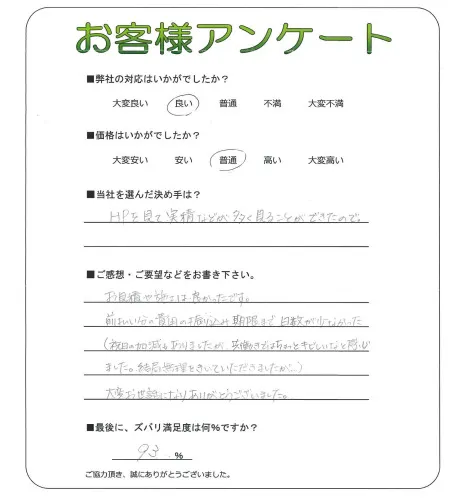 お客様アンケート
■弊社の対応はいかがでしたか？
大変良い 良い 普通 不満 大変不満
■価格はいかがでしたか？
大変安い 安い 普通 高い 大変高い
■当社を選んだ決め手は？
HPを見て実績などが多く見ることができたので。
■ご感想・ご要望などをお書き下さい。
お見積や施工は良かったです。
前払い分の費用の振り込み期限まで日数が少なかった
(祝日の加減もありましたが、共働きではちょっときびしいなと思い
ました。結局無理をきいていただきましたが…)
大変お世話になりありがとうございました。
■最後に、ズバリ満足度は何%ですか？
93 %
ご協力頂き、誠にありがとうございました。